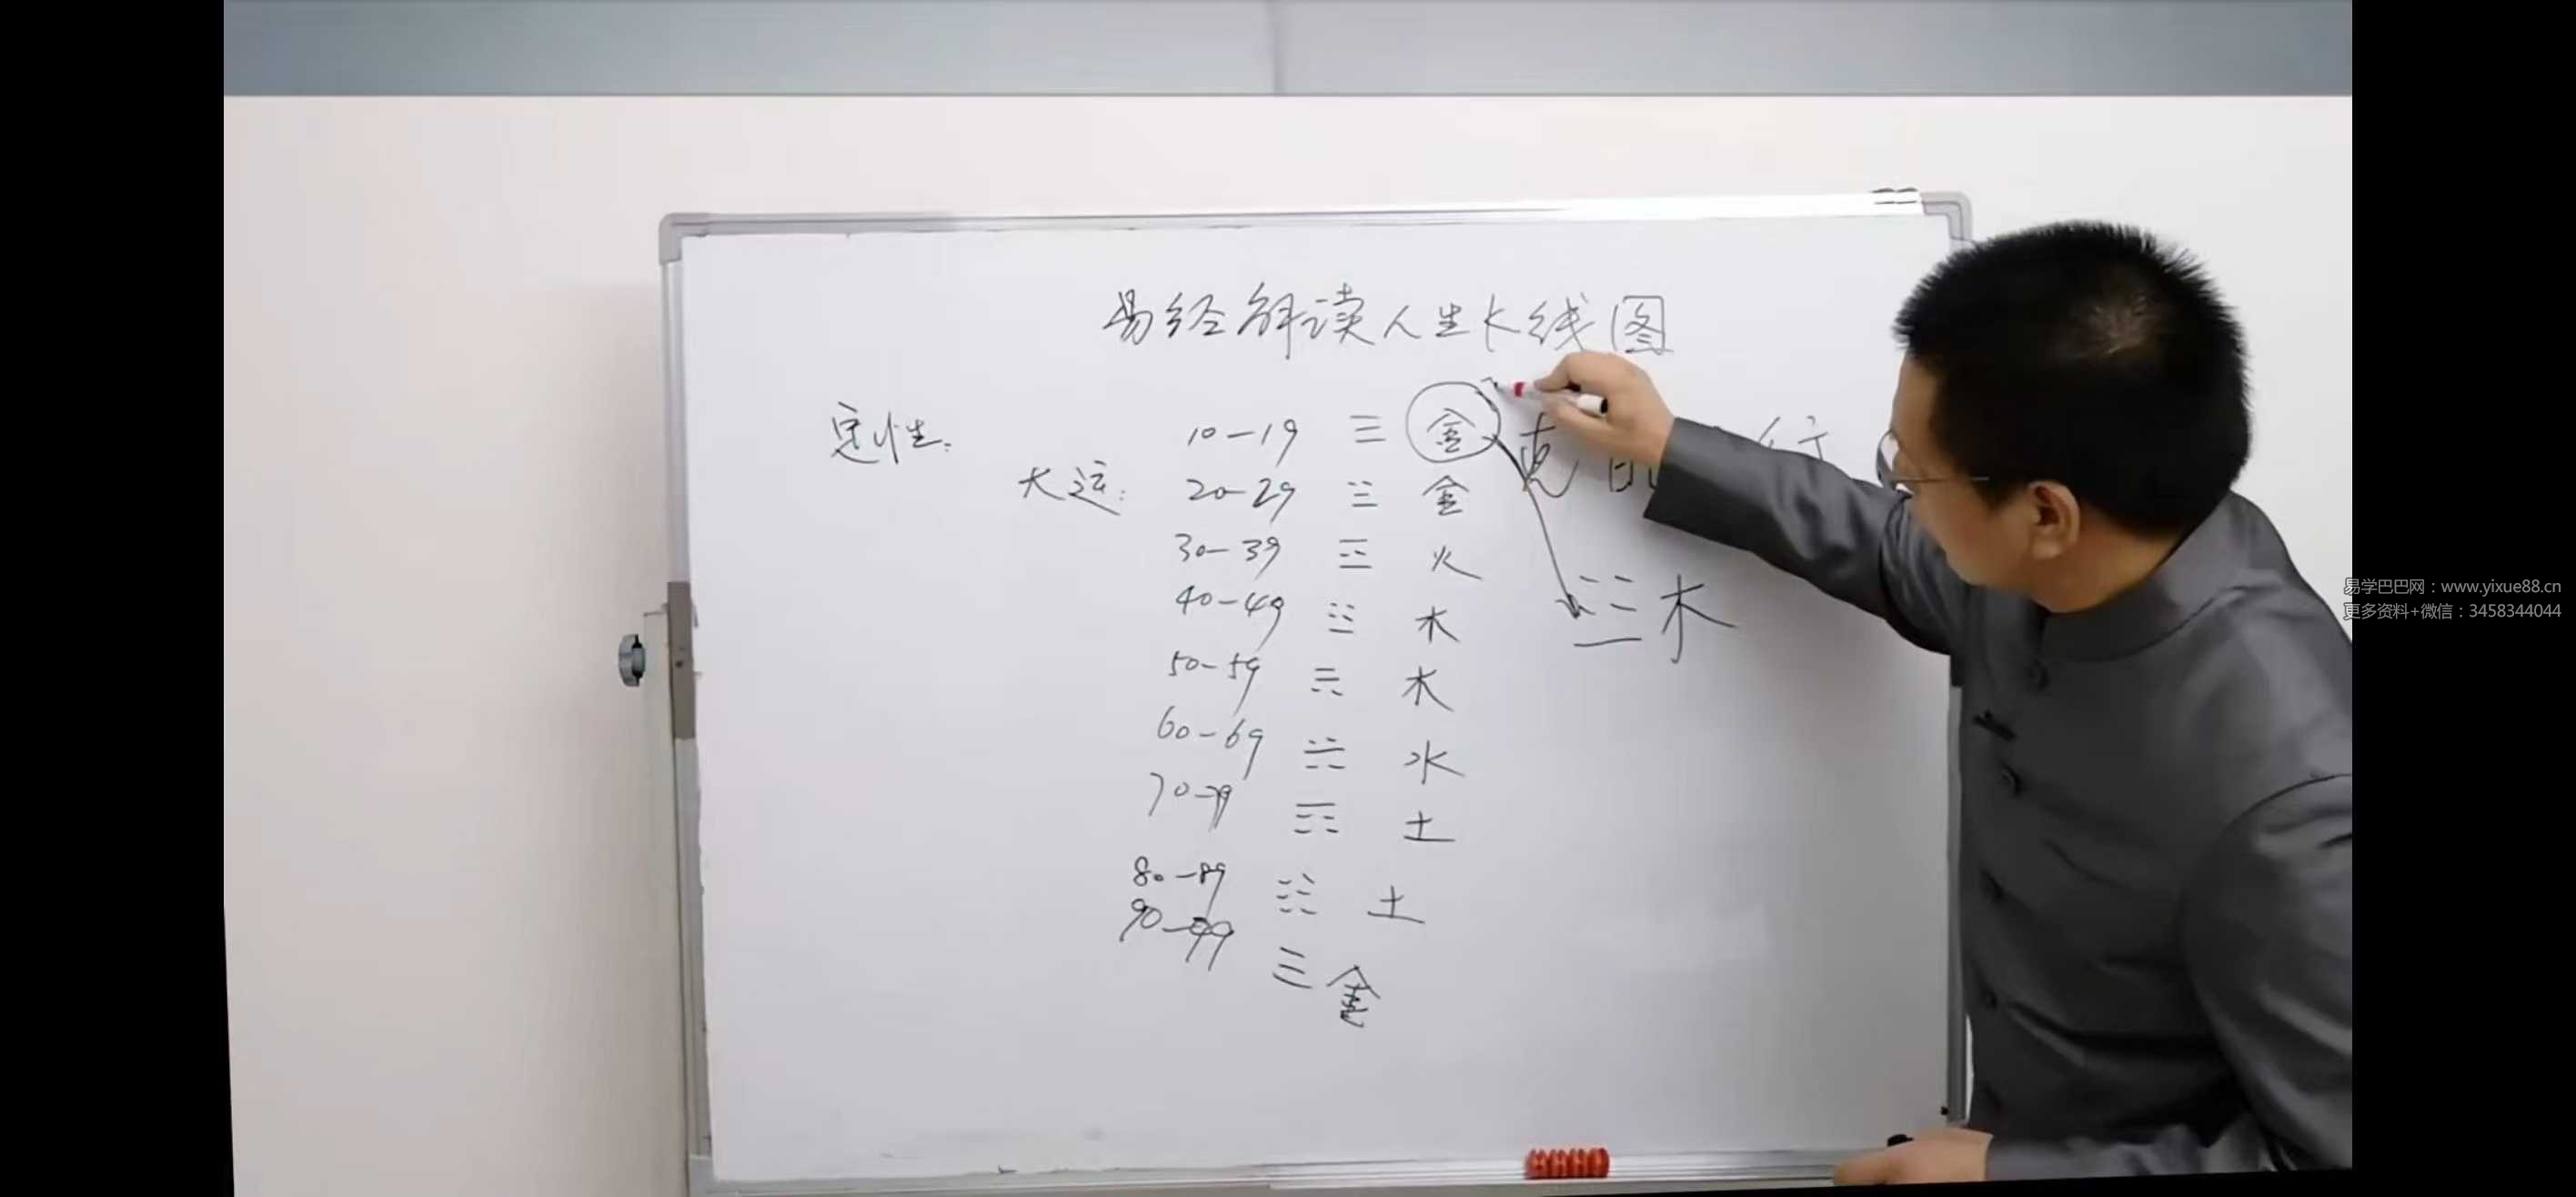 易经解读人生K线图
定性:
大运:
10-19 ☰ 金
20-29 ☱ 金
30-39 ☲ 火
40-49 ☳ 木
50-59 ☴ 木
60-69 ☵ 水
70-79 ☶ 土
80-89 ☷ 土
90-99 ☰ 金
克
行
☳木
易学巴巴网：www.yixue88.cn
更多资料+微信：3458344044